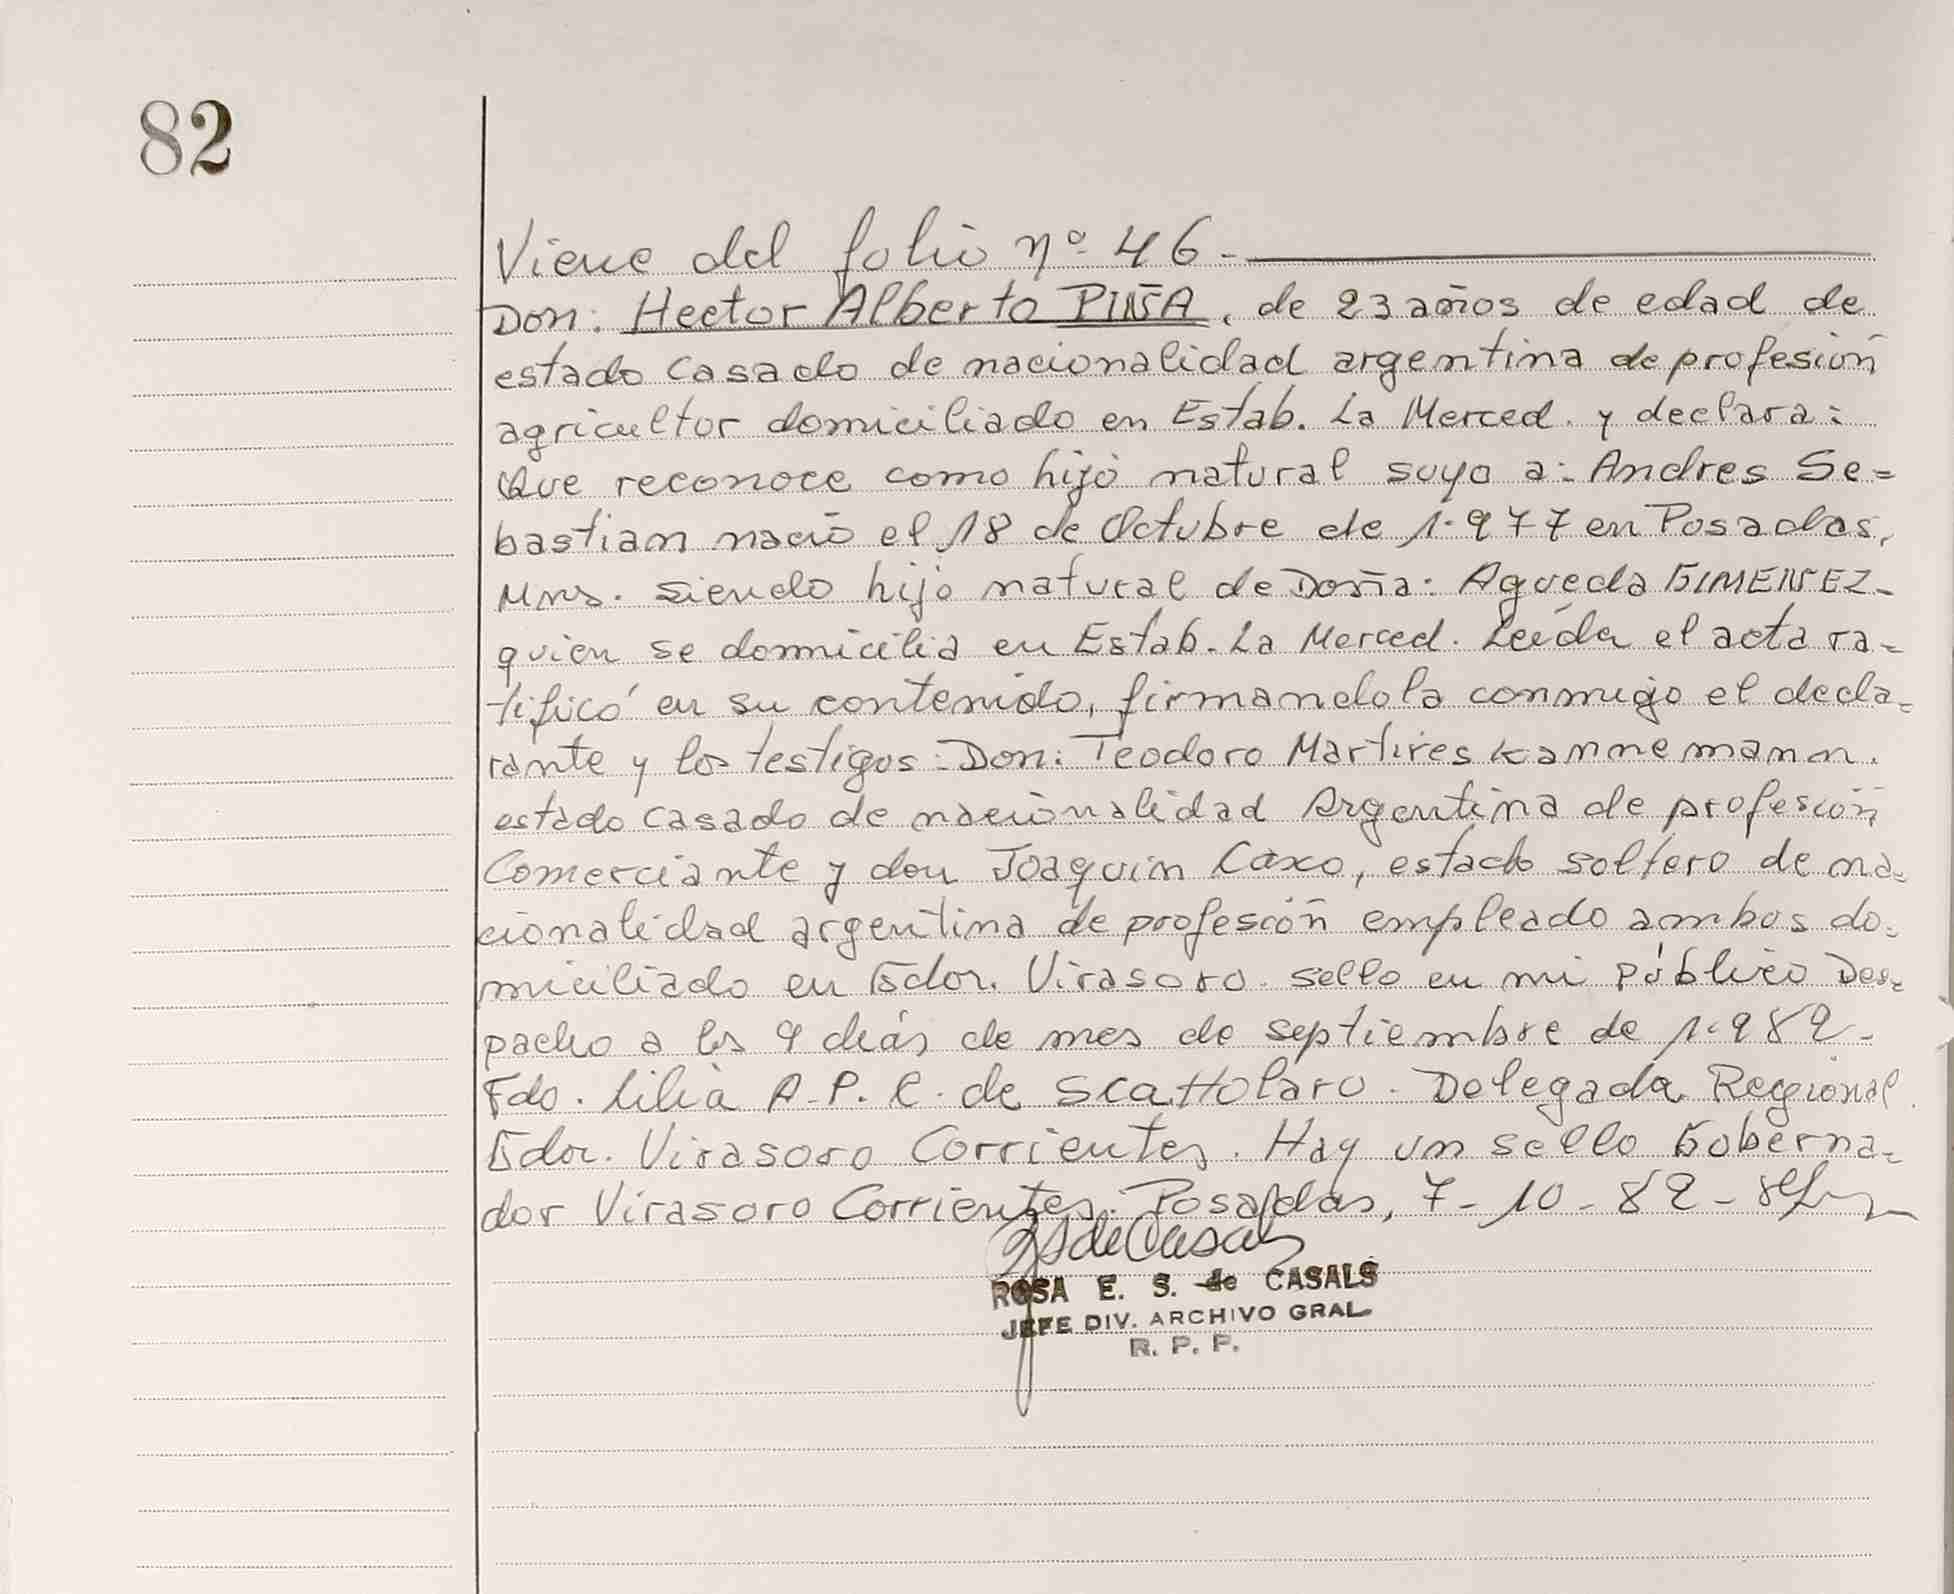 82
Viene del folio nº 46.-
Don: Hector Alberto PIÑA, de 23 años de edad de
estado casado de nacionalidad argentina de profesión
agricultor domiciliado en Estab. La Merced. y declara:
Que reconoce como hijo natural suyo a: Andres Se=
bastian nació el 18 de Octubre de 1.977 en Posadas,
Mns. siendo hijo natural de Doña: Agueda GIMENEZ-
quien se domicilia en Estab. La Merced. Leída el acta ra-
tificó en su contenido, firmandola conmigo el decla=
rante y los testigos: Don: Teodoro Martires Kannemann.
estado casado de nacionalidad Argentina de profesión
Comerciante y don Joaquin Caxo, estado soltero de na=
cionalidad argentina de profesión empleado ambos do=
miciliado en Gdor. Virasoro. sello en mi público Des=
pacho a los 9 días de mes de septiembre de 1.982-
Fdo. Lilia A. P. C. de Scattolaro. Delegada Regional.
Gdor. Virasoro Corrientes. Hay un sello Goberna=
dor Virasoro Corrientes. Posadas, 7-10-82-
ROSA E. S. de CASALS
JEFE DIV. ARCHIVO GRAL
R. P. P.